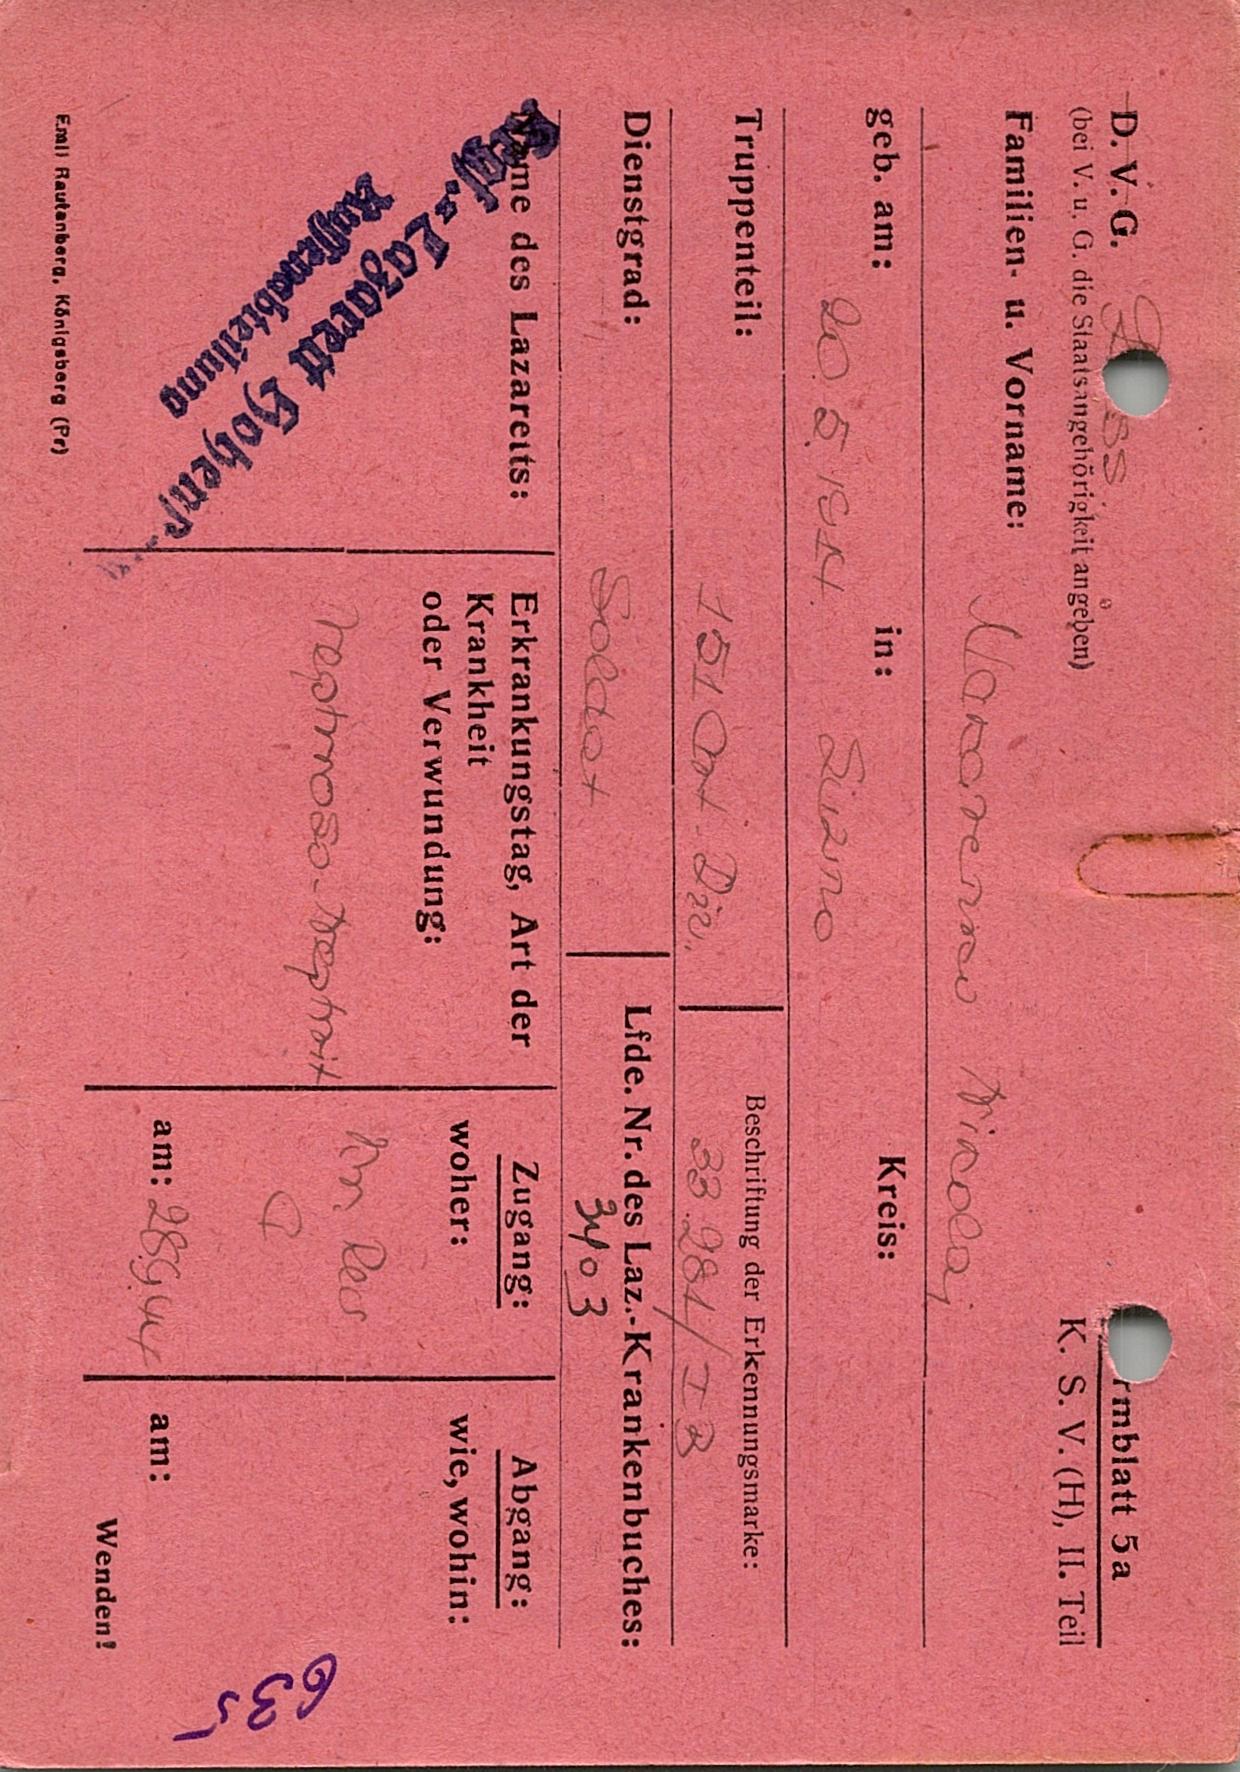 D. V. G.
(bei V. u. G. die Staatsangehörigkeit angeben)
rmblatt 5a
K. S. V. (H), II. Teil
Familien- u. Vorname: Nicolaj
geb. am: 20. 5. 1914. in: Kreis:
Truppenteil: 151 Div. Beschriftung der Erkennungsmarke: 33 281/I B
Dienstgrad: Soldat Lfde. Nr. des Laz.-Krankenbuches: 3403
Name des Lazaretts:
Krgf.-Lazarett Hohens
Erkrankungstag, Art der
Krankheit
oder Verwundung:
Nephroso-Nephrit
Zugang:
woher:
am: 28 9 44
Abgang:
wie, wohin:
am:
Wenden!
635
Emil Rautenberg, Königsberg (Pr)